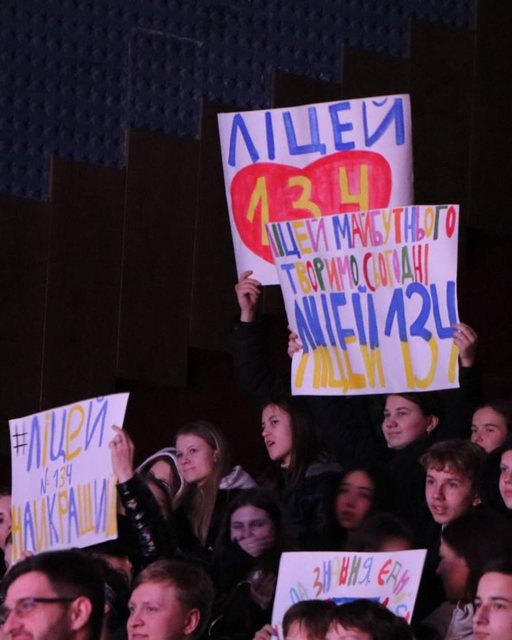 ЛІЦЕЙ
134
ЛІЦЕЙ МАЙБУТНЬОГО
ТВОРИМО СЬОГОДНІ
ЛІЦЕЙ 134
ЛІЦЕЙ 134
#ЛІЦЕЙ
№134
НАЙКРАЩИЙ
ЗНАННЯ ЄДН